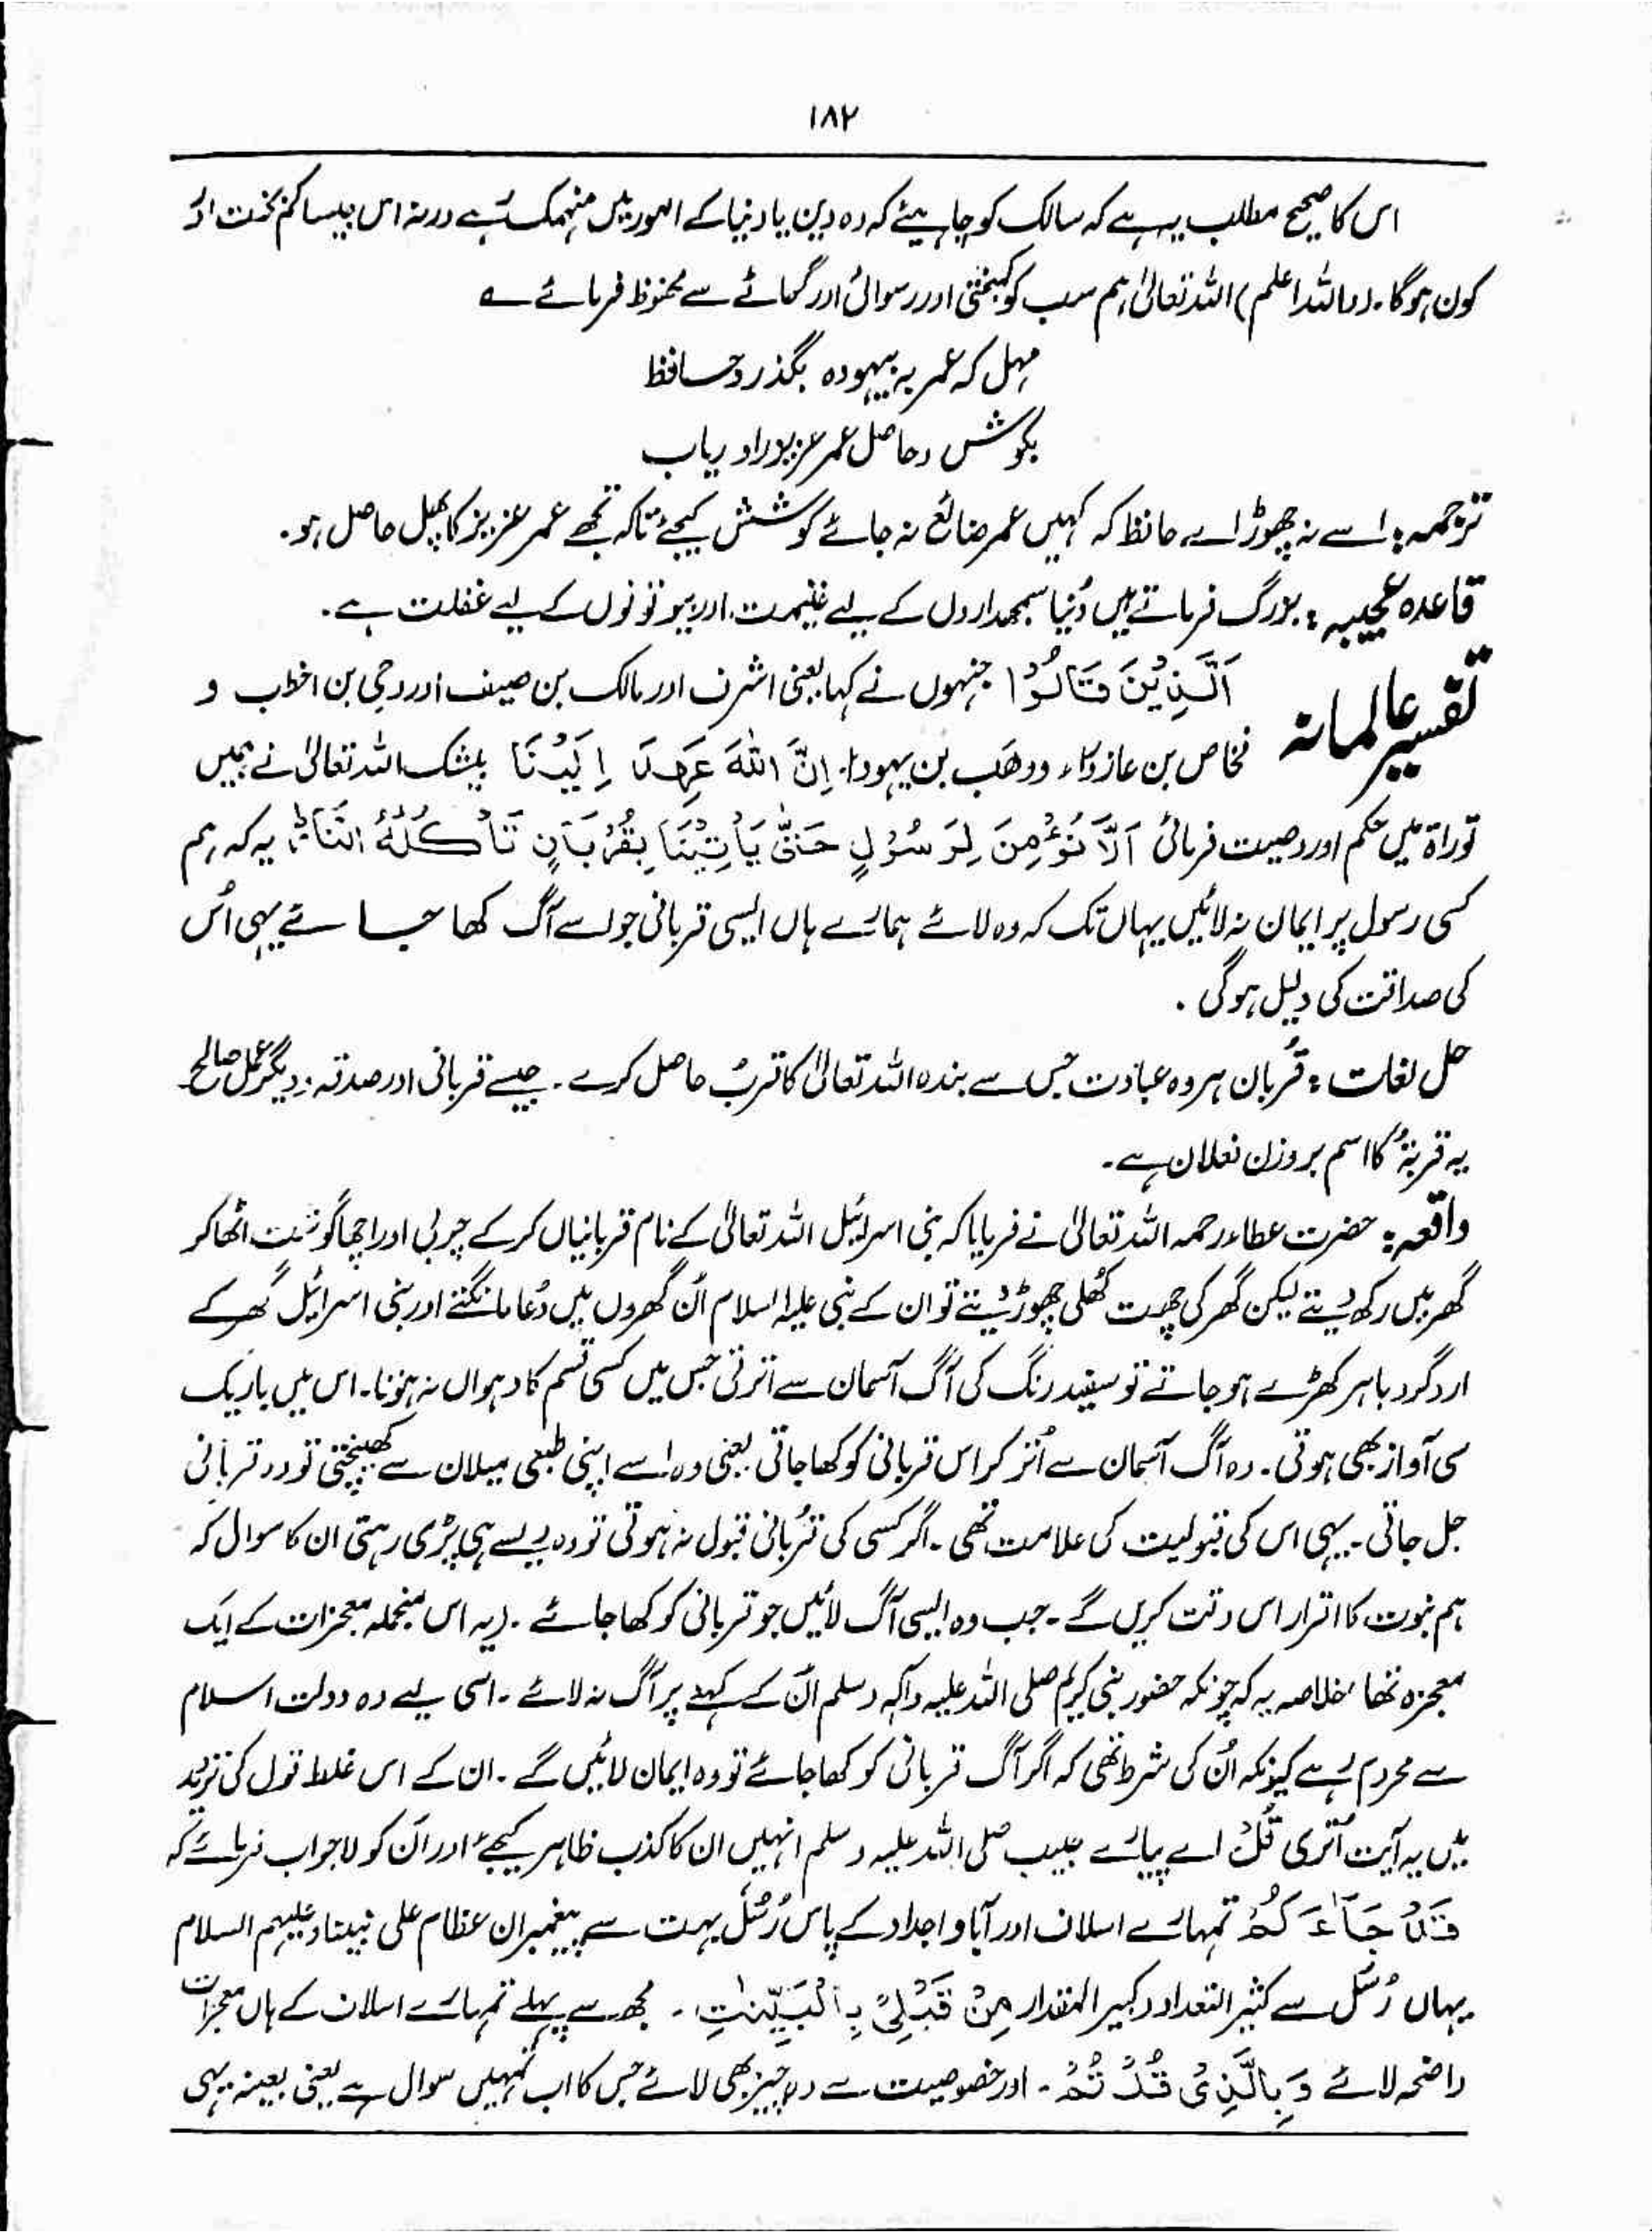 ۱۸۲
اس کا صحیح مطلب یہ ہے کہ سالک کو چاہیئے کہ وہ دین یا دنیا کے امور میں منہمک رہے ورنہ اس جیسا کم بخت اور
کون ہوگا۔ (واللہ اعلم) اللہ تعالیٰ ہم سب کو کمبختی اور رسوائی اور گھاٹے سے محفوظ فرمائے ؎
مہل کہ عمر بہ بیہودہ بگذرد حافظ
بکوش و حاصل عمر عزیز را دریاب
ترجمہ: اسے نہ چھوڑ اے حافظ کہ کہیں عمر ضائع نہ جائے کوشش کیجئے تاکہ تجھے عمر عزیز کا پھل حاصل ہو۔
قاعدہ عجیبہ: بزرگ فرماتے ہیں دُنیا سمجھداروں کے لیے غنیمت اور بیوقوفوں کے لیے غفلت ہے۔
تفسیر عالمانہ اَلَّذِیْنَ قَالُوْا جنہوں نے کہا یعنی اشرف اور مالک بن صیف اور حی بن اخطب و
فخاص بن عازوراء ووھب بن یہودا۔ اِنَّ اللّٰہَ عَہِدَ اِلَیْنَا بیشک اللہ تعالیٰ نے ہمیں
توراۃ میں حکم اور وصیت فرمائی اَلَّا نُؤْمِنَ لِرَسُوْلٍ حَتّٰی یَأْتِیَنَا بِقُرْبَانٍ تَأْکُلُہُ النَّارُ یہ کہ ہم
کسی رسول پر ایمان نہ لائیں یہاں تک کہ وہ لائے ہمارے ہاں ایسی قربانی جو اسے آگ کھا جائے یہی اُس
کی صداقت کی دلیل ہوگی۔
حل لغات: قُربان ہر وہ عبادت جس سے بندہ اللہ تعالیٰ کا قرب حاصل کرے۔ جیسے قربانی اور صدقہ و دیگر عمل صالح
یہ قربۃٌ کا اسم بروزن فعلان ہے۔
واقعہ: حضرت عطاء رحمہ اللہ تعالیٰ نے فرمایا کہ بنی اسرائیل اللہ تعالیٰ کے نام قربانیاں کر کے چربی اور اچھا گوشت اٹھا کر
گھر میں رکھ دیتے لیکن گھر کی چھت کُھلی چھوڑ دیتے تو ان کے نبی علیہ السلام اُن گھروں میں دُعا مانگتے اور بنی اسرائیل گھر کے
اردگرد باہر کھڑے ہو جاتے تو سفید رنگ کی آگ آسمان سے اترتی جس میں کسی قسم کا دہواں نہ ہوتا۔ اس میں باریک
سی آواز بھی ہوتی۔ وہ آگ آسمان سے اُتر کر اس قربانی کو کھا جاتی یعنی وہ اسے اپنی طبعی میلان سے کھینچتی تو وہ قربانی
جل جاتی۔ یہی اس کی قبولیت کی علامت تھی۔ اگر کسی کی قُربانی قبول نہ ہوتی تو وہ ویسے ہی پڑی رہتی ان کا سوال کہ
ہم نبوت کا اقرار اس وقت کریں گے۔ جب وہ ایسی آگ لائیں جو قربانی کو کھا جائے۔ (یہ اس منجملہ معجزات کے ایک
معجزہ تھا) خلاصہ یہ کہ چونکہ حضور نبی کریم صلی اللہ علیہ وآلہ وسلم اُن کے کہنے پر آگ نہ لائے۔ اسی لیے وہ دولت اسلام
سے محروم رہے کیونکہ اُن کی شرط تھی کہ اگر آگ قربانی کو کھا جائے تو وہ ایمان لائیں گے۔ ان کے اس غلط قول کی تردید
میں یہ آیت اُتری قُلْ اے پیارے حبیب صلی اللہ علیہ وسلم انہیں ان کا کذب ظاہر کیجئے اور اُن کو لاجواب فرمائے کہ
قَدْ جَآءَکُمْ تمہارے اسلاف اور آبا و اجداد کے پاس رُسُلٌ بہت سے پیغمبران عظام علی نبینا وعلیہم السلام
یہاں رُسُل سے کثیر التعداد و کبیر المقدار مِنْ قَبْلِیْ بِالْبَیِّنٰتِ۔ مجھ سے پہلے تمہارے اسلاف کے ہاں معجزات
واضحہ لائے وَبِالَّذِیْ قُلْتُمْ۔ اور خصوصیت سے وہ چیز بھی لائے جس کا اب تمہیں سوال ہے یعنی بعینہ یہی